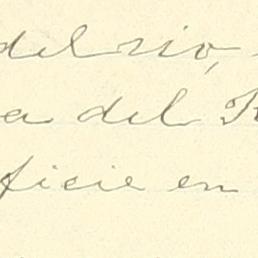 del rio,
a del R
ficie en